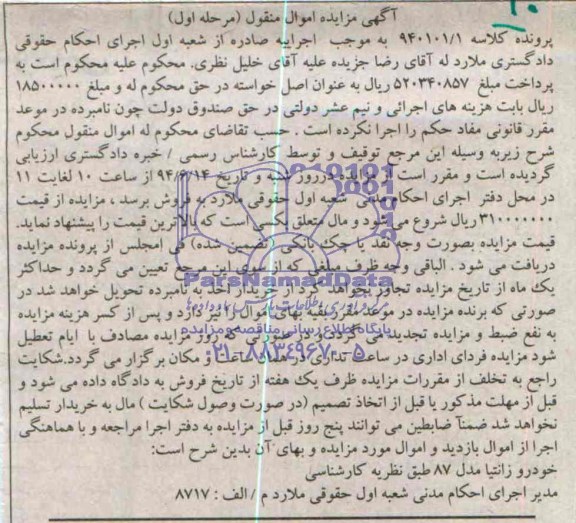 آگهی مزایده اموال منقول (مرحله اول)
پرونده کلاسه ۹۴۰۱۰۱/۱ به موجب اجراییه صادره از شعبه اول اجرای احکام حقوقی
دادگستری ملارد له آقای رضا جزیده علیه آقای خلیل نظری. محکوم علیه محکوم است به
پرداخت مبلغ ۵۲۰۳۴۰۸۵۷ ریال به عنوان اصل خواسته در حق محکوم له و مبلغ ۱۸۵۰۰۰۰۰
ریال بابت هزینه های اجرائی و نیم عشر دولتی در حق صندوق دولت چون نامبرده در موعد
مقرر قانونی مفاد حکم را اجرا نکرده است . حسب تقاضای محکوم له اموال منقول محکوم
شرح زیربه وسیله این مرجع توقیف و توسط کارشناس رسمی / خبره دادگستری ارزیابی
گردیده است و مقرر است از مزایده درروز شنبه و تاریخ ۹۴/۶/۱۴ از ساعت ۱۰ لغایت ۱۱
در محل دفتر اجرای احکام مدنی شعبه اول حقوقی ملارد به فروش برسد ، مزایده از قیمت
۳۱۰۰۰۰۰۰۰ ریال شروع می شود و مال متعلق بکسی است که بالاترین قیمت را پیشنهاد نماید.
قیمت مزایده بصورت وجه نقد یا چک بانکی (تضمین شده) فی امجلس از پرونده مزایده
دریافت می شود . الباقی وجه ظرف مبلغی که از سوی این مرجع تعیین می گردد و حداکثر
یک ماه از تاریخ مزایده تجاوز نخواهد کرد از خریدار اخذ و نامبرده تحویل خواهد شد در
صورتی که برنده مزایده در موعد مقرر بقیه بهای اموال را نپردازد و پس از کسر هزینه مزایده
به نفع ضبط و مزایده تجدید می گردد. در صورتی که روز مزایده مصادف با ایام تعطیل
شود مزایده فردای اداری در ساعت اداری در همان ساعت و مکان برگزار می گردد.شکایت
راجع به تخلف از مقررات مزایده ظرف یک هفته از تاریخ فروش به دادگاه داده می شود و
قبل از مهلت مذکور یا قبل از اتخاذ تصمیم (در صورت وصول شکایت ) مال به خریدار تسلیم
نخواهد شد ضمناً ضابطین می توانند پنج روز قبل از مزایده به دفتر اجرا مراجعه و با هماهنگی
اجرا از اموال بازدید و اموال مورد مزایده و بهای آن بدین شرح است:
خودرو زانتیا مدل ۸۷ طبق نظریه کارشناسی
مدیر اجرای احکام مدنی شعبه اول حقوقی ملارد م / الف : ۸۷۱۷
ParsNamadData
پایگاه اطلاع رسانی مناقصه و مزایده
۰۲۱-۸۸۳۴۹۶۷۰-۵